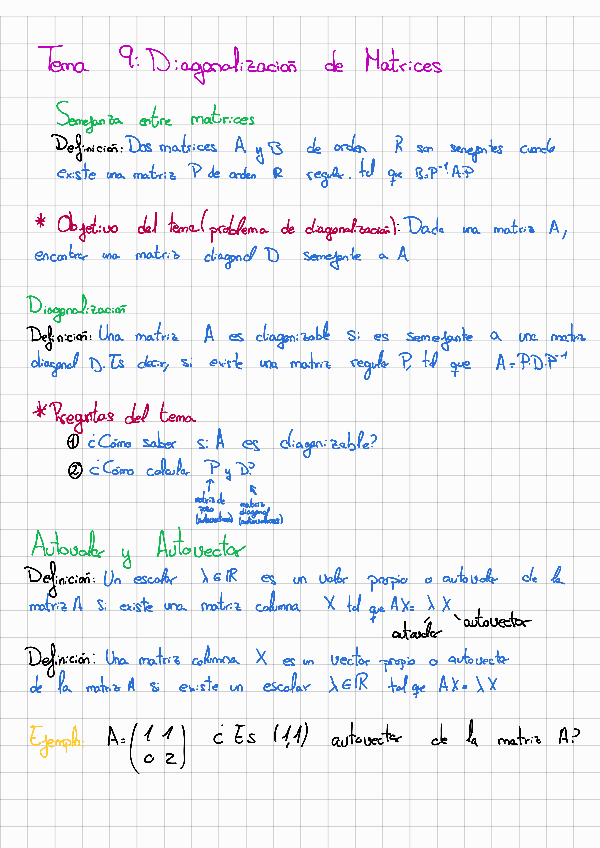 Tema 9: Diagonalización de Matrices
Semejanza entre matrices
Definición: Dos matrices A y B de orden R son semejantes cuando
existe una matriz P de orden R regular. tal que B=P⁻¹AP
* Objetivo del tema (problema de diagonalización): Dada una matriz A,
encontrar una matriz diagonal D semejante a A
Diagonalización
Definición: Una matriz A es diagonizable si es semejante a una matriz
diagonal D. Es decir, si existe una matriz regular P, tal que A=P·D·P⁻¹
* Preguntas del tema
① ¿Cómo saber si A es diagonizable?
② ¿Cómo calcular P y D?
matriz de matriz
paso diagonal
(autovectores) (autovalores)
Autovalor y Autovector
Definición: Un escalar λ∈R es un valor propio o autovalor de la
matriz A si existe una matriz columna X tal que AX= λ X
autovalor autovector
Definición: Una matriz columna X es un vector propio o autovector
de la matriz A si existe un escalar λ∈R tal que AX=λX
Ejemplo: A= (1 1 ¿Es (1,1) autovector de la matriz A?
0 2)